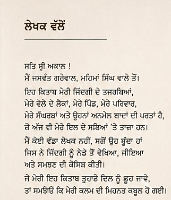 ਲੇਖਕ ਵੱਲੋਂ
ਸਤਿ ਸ੍ਰੀ ਅਕਾਲ !
ਮੈਂ ਜਸਵੰਤ ਗਰੇਵਾਲ, ਮਹਿਮਾ ਸਿੰਘ ਵਾਲੇ ਤੋਂ।
ਇਹ ਕਿਤਾਬ ਮੇਰੀ ਜ਼ਿੰਦਗੀ ਦੇ ਤਜਰਬਿਆਂ,
ਮੇਰੇ ਵੇਲੇ ਦੇ ਲੋਕਾਂ, ਮੇਰੇ ਪਿੰਡ, ਮੇਰੇ ਪਰਿਵਾਰ,
ਮੇਰੇ ਸੰਘਰਸ਼ਾਂ ਅਤੇ ਉਹਨਾਂ ਅਨਮੋਲ ਯਾਦਾਂ ਦੀ ਪਰਤਾਂ ਹੈ,
ਜੋ ਅੱਜ ਵੀ ਮੇਰੇ ਦਿਲ ਦੇ ਸਫ਼ਿਆਂ 'ਤੇ ਤਾਜ਼ਾ ਹਨ।
ਮੈਂ ਕੋਈ ਵੱਡਾ ਲੇਖਕ ਨਹੀਂ, ਸਗੋਂ ਉਹ ਬੂੰਦਾਂ ਹਾਂ
ਜਿਸ ਨੇ ਜ਼ਿੰਦਗੀ ਨੂੰ ਨੇੜੇ ਤੋਂ ਵੇਖਿਆ, ਜੀਇਆ
ਅਤੇ ਸਮਝਣ ਦੀ ਕੋਸ਼ਿਸ਼ ਕੀਤੀ।
ਜੇ ਮੇਰੀ ਇਹ ਕਿਤਾਬ ਤੁਹਾਡੇ ਦਿਲ ਨੂੰ ਛੂਹ ਜਾਵੇ,
ਤਾਂ ਸਮਝਿਓ ਕਿ ਮੇਰੀ ਕਲਮ ਦੀ ਮਿਹਨਤ ਕਬੂਲ ਹੋ ਗਈ!